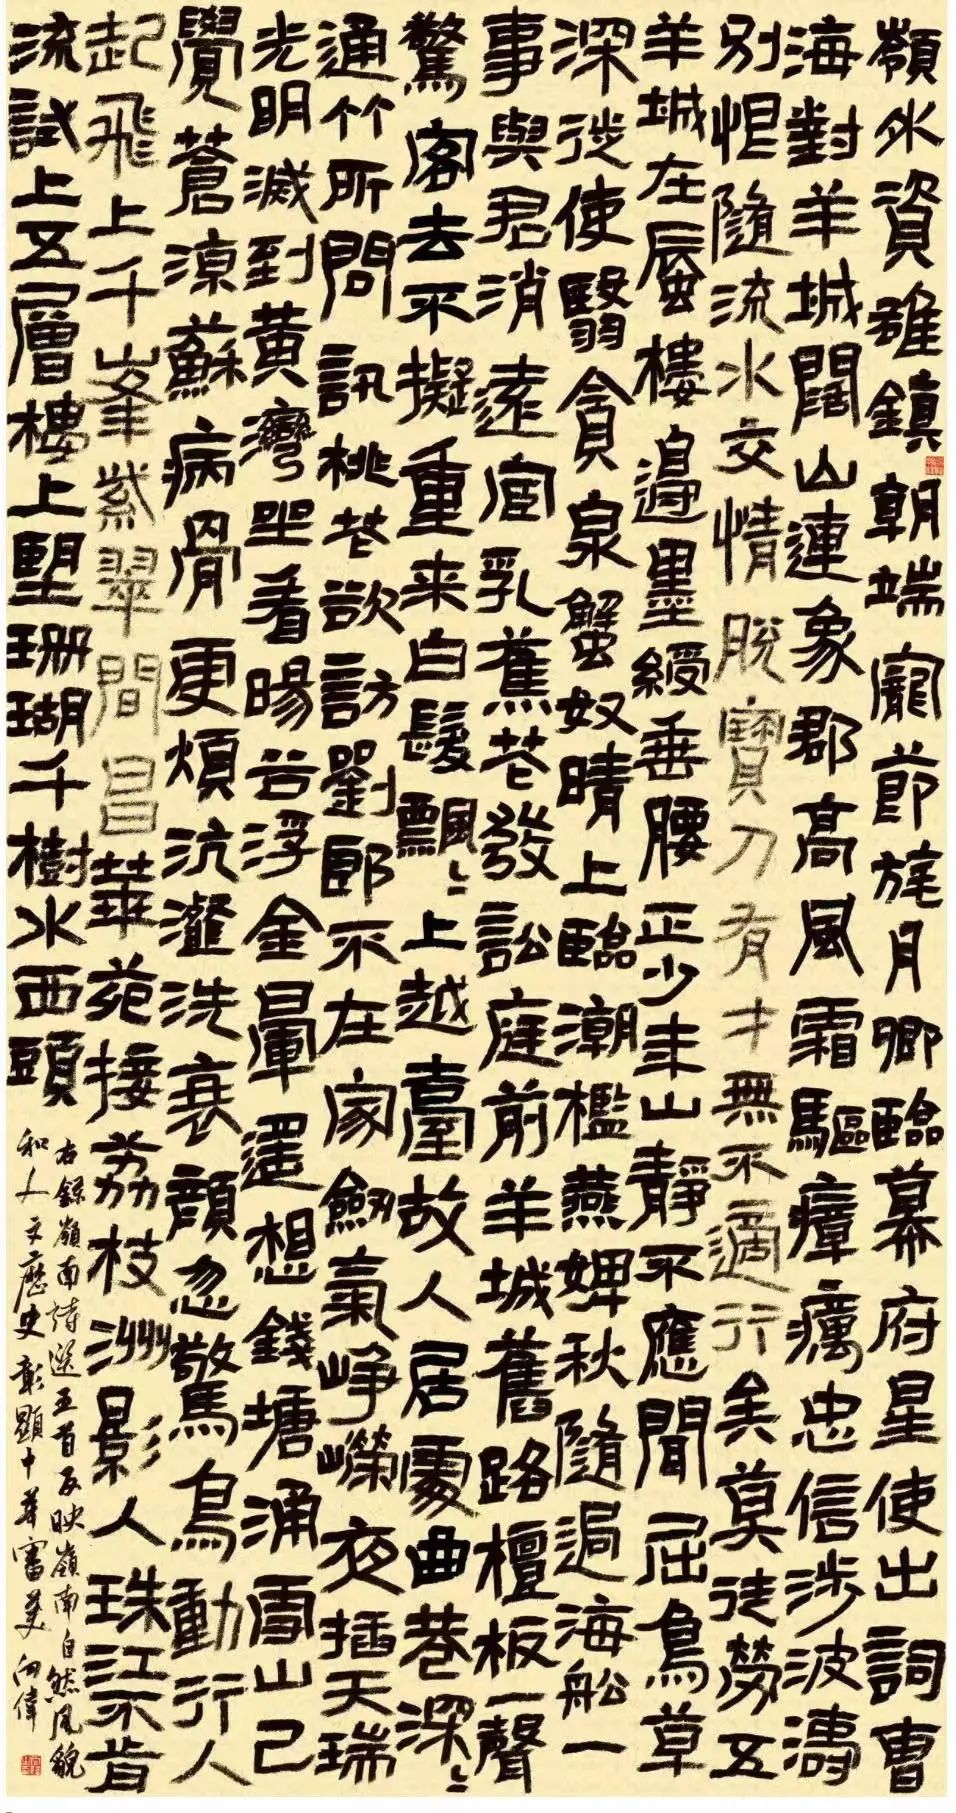 嶺外資雄鎮朝端寵節旄月卿臨幕府星使出詞曹
海對羊城闊山連象郡高風霜驅瘴癘忠信涉波濤
別恨隨流水交情脫寶刀有才無不適行矣莫徒勞五
羊城在蜃樓邊墨綬垂腰正少年山靜不應聞屈鳥草
深徙使翳貪泉蟹奴晴上臨潮檻燕婢秋隨過海船一
事與君消遠宦乳蕉花發訟庭前羊城舊路檀板一聲
驚客去不擬重来白髮飄〻上越臺故人居處曲巷深〻
通竹所問訊桃花欲訪劉郎不在家劍氣崢嶸夜插天瑞
光明滅到黃灣坐看暘谷浮金暈遥想錢塘涌雪山已
覺蒼涼蘇病骨更煩沆瀣洗衰顏忽驚鳥動行人
起飛上千峯紫翠間昌華苑接荔枝洲影人珠江不肯
流試上五層樓上望珊瑚千樹水西頭
右錄嶺南詩選五首反映嶺南自然風貌
和人文歷史彰顯中華審美 向偉